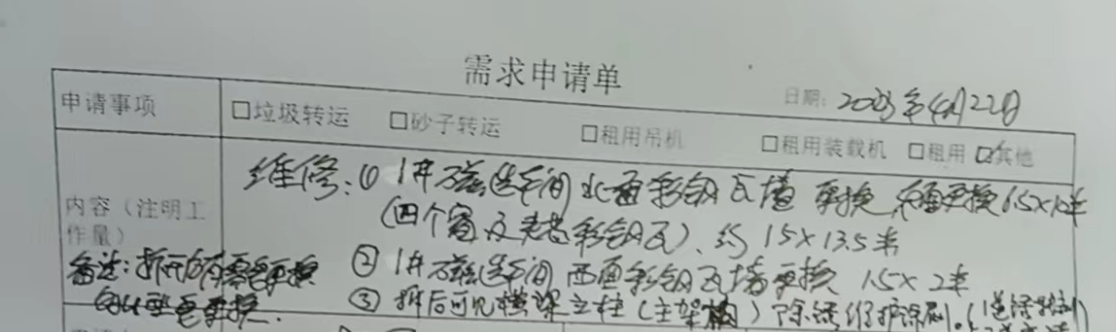 需求申请单
日期: 2023年4月22日
申请事项 □垃圾转运 □砂子转运 □租用吊机 □租用装载机 □租用 ☑其他
内容（注明工作量）
维修：① 1井磁选车间北面彩钢瓦墙 更换，更换6.5×1米
（四个窗及老彩钢瓦）、约15×13.5米
② 1井磁选车间西面彩钢瓦墙更换 1.5×2米
③ 拆后可见横梁立柱（主架构）除锈维护涂刷.
备注：拆开后有需要更换
更换.